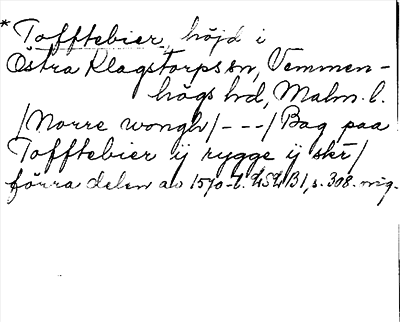 * Tofftebier, höjd i
Östra Klagstorps sn, Vemmen-
högs hd, Malm. l.
/Norre wongh/ - - - /Bag paa
Tofftebier ij rygge ij skr/
förra delen av 1570-t. LSLB1, s. 308. mig.